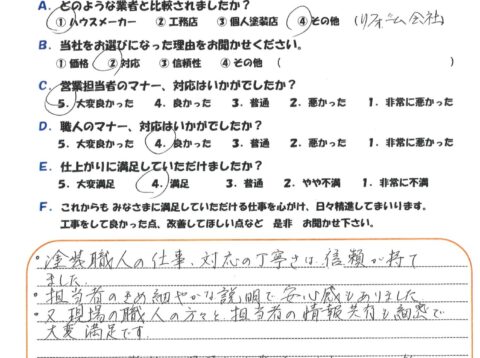 A. どのような業者と比較されましたか?
①ハウスメーカー ②工務店 ③個人塗装店 ④その他 (リフォーム会社)
B. 当社をお選びになった理由をお聞かせください。
①価格 ②対応 ③信頼性 ④その他 ( )
C. 営業担当者のマナー、対応はいかがでしたか?
5. 大変良かった 4. 良かった 3. 普通 2. 悪かった 1. 非常に悪かった
D. 職人のマナー、対応はいかがでしたか?
5. 大変良かった 4. 良かった 3. 普通 2. 悪かった 1. 非常に悪かった
E. 仕上がりに満足していただけましたか?
5. 大変満足 4. 満足 3. 普通 2. やや不満 1. 非常に不満
F. これからも みなさまに満足していただける仕事を心がけ、日々精進してまいります。
工事をして良かった点、改善してほしい点など 是非 お聞かせ下さい。
・塗装職人の仕事、対応の丁寧さは、信頼が持て
ました。
・担当者のきめ細やかな説明で安心感もありました
・又、現場の職人の方々と、担当者の情報共有も綿密で
大変満足です。